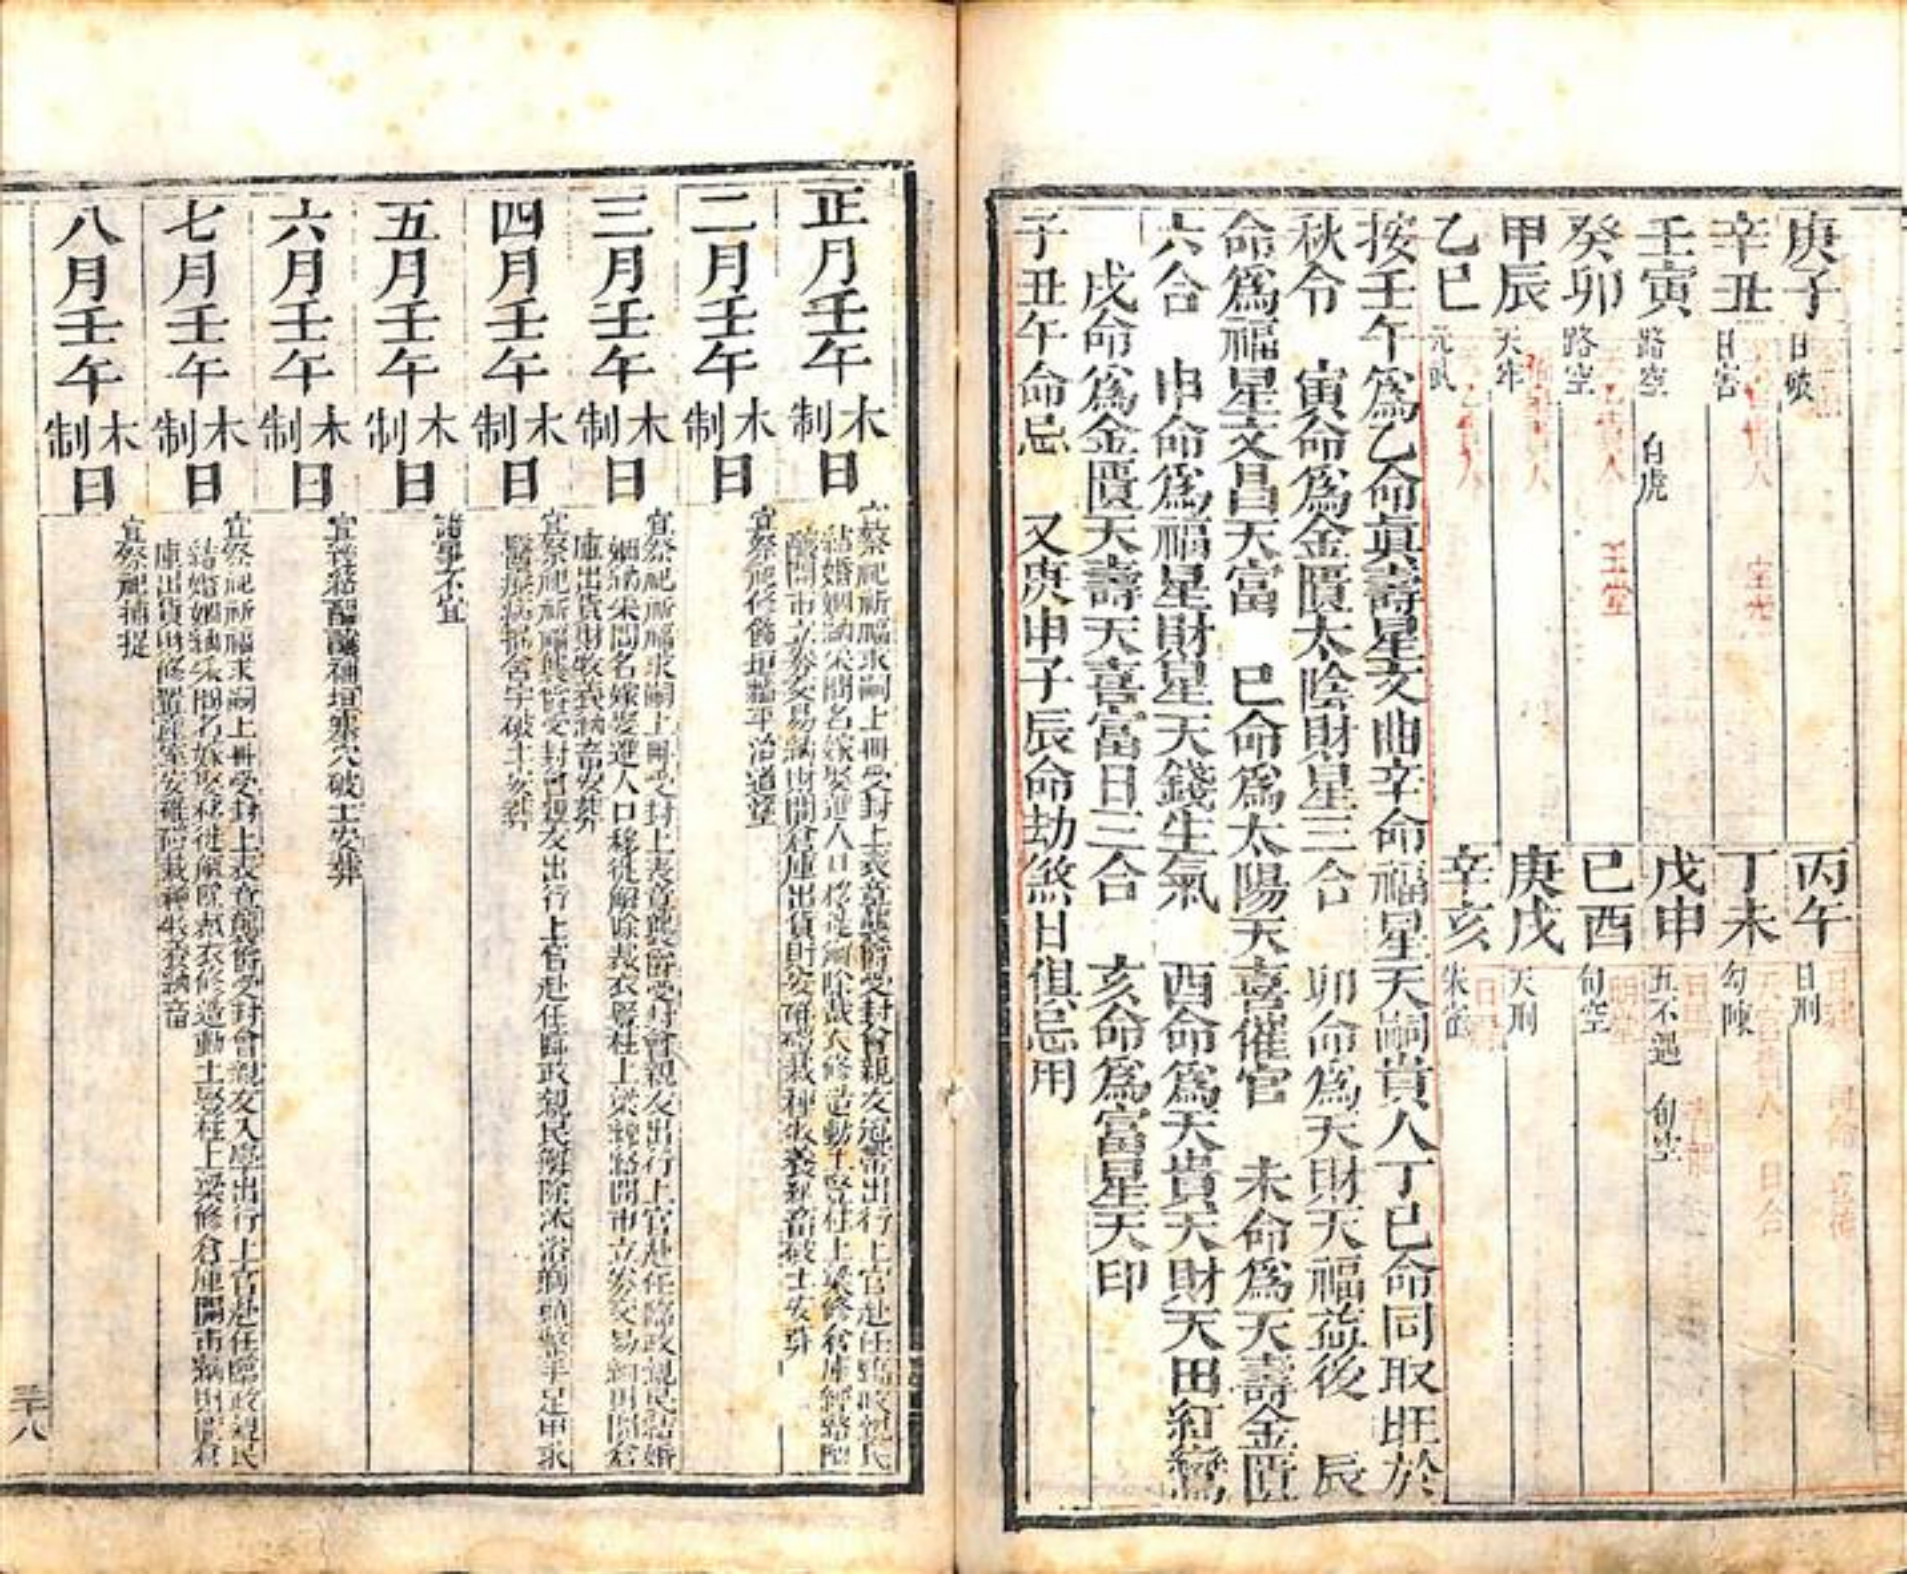 庚子 日破
辛丑 日害
壬寅 路空 白虎
癸卯 路空 玉堂
甲辰 天牢
乙巳 元武
丙午 日刑
丁未 勾陳 日合
戊申 五不遇 旬空
己酉 旬空
庚戌 天刑
辛亥 朱雀
按壬午為乙命眞壽星文曲辛命福星天嗣貴人丁巳命同取旺於
秋令 寅命為金匱太陰財星三合 卯命為天財天福益後 辰
命為福星文昌天富 巳命為太陽天喜催官 未命為天壽金匱
六合 申命為福星財星天錢生氣 酉命為天貴天財天田紅鸞
戌命為金匱天壽天喜富日三合 亥命為富星天印
子丑午命忌 又庚申子辰命劫煞日俱忌用
正月壬午 木制日
宜祭祀祈福求嗣上冊受封上表章襲爵受封會親友冠帶出行上官赴任臨政親民
結婚姻納采問名嫁娶進人口移徙解除裁衣修造動土豎柱上梁修倉庫經絡醞
釀開市立券交易納財開倉庫出貨財安碓磑栽種牧養納畜破土安葬
二月壬午 木制日
宜祭祀修飾垣牆平治道塗
三月壬午 木制日
宜祭祀祈福求嗣上冊受封上表章襲爵受封會親友出行上官赴任臨政親民結婚
姻納采問名嫁娶進人口移徙解除裁衣豎柱上梁經絡開市立券交易納財開倉
庫出貨財牧養納畜安葬
四月壬午 木制日
宜祭祀祈福襲爵受封會親友出行上官赴任臨政親民解除沐浴剃頭整手足甲求
醫療病掃舍宇破土安葬
五月壬午 木制日
諸事不宜
六月壬午 木制日
醞釀補垣塞穴破土安葬
七月壬午 木制日
宜祭祀祈福求嗣上冊受封上表章襲爵受封會親友入學出行上官赴任臨政親民
結婚姻納采問名嫁娶移徙解除裁衣修造動土豎柱上梁修倉庫開市納財開倉
庫出貨財修置產室安碓磑栽種牧養納畜
八月壬午 木制日
宜祭祀捕捉
三十八